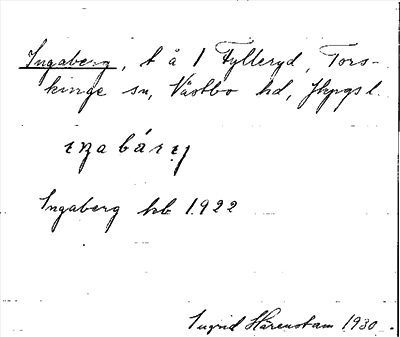 Ingaberg, t å 1 Fylleryd, Tors-
kinge sn, Västbo hd, Jkpgs l.
Ingaberg hb 1922
Ingrid Härenstam 1930.